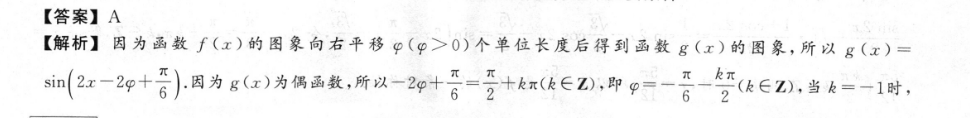 【答案】A
【解析】因为函数 f(x)的图象向右平移 φ(φ>0)个单位长度后得到函数 g(x)的图象,所以 g(x)=
sin(2x-2φ+π/6).因为 g(x)为偶函数,所以-2φ+π/6=π/2+kπ(k∈Z),即 φ=-π/6-kπ/2(k∈Z),当 k=-1时,